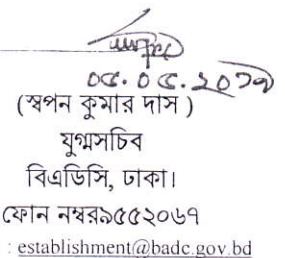 ০৫.০৫.২০১৭
(স্বপন কুমার দাস )
যুগ্মসচিব
বিএডিসি, ঢাকা।
ফোন নম্বর৯৫৫২০৬৭
: establishment@badc.gov.bd